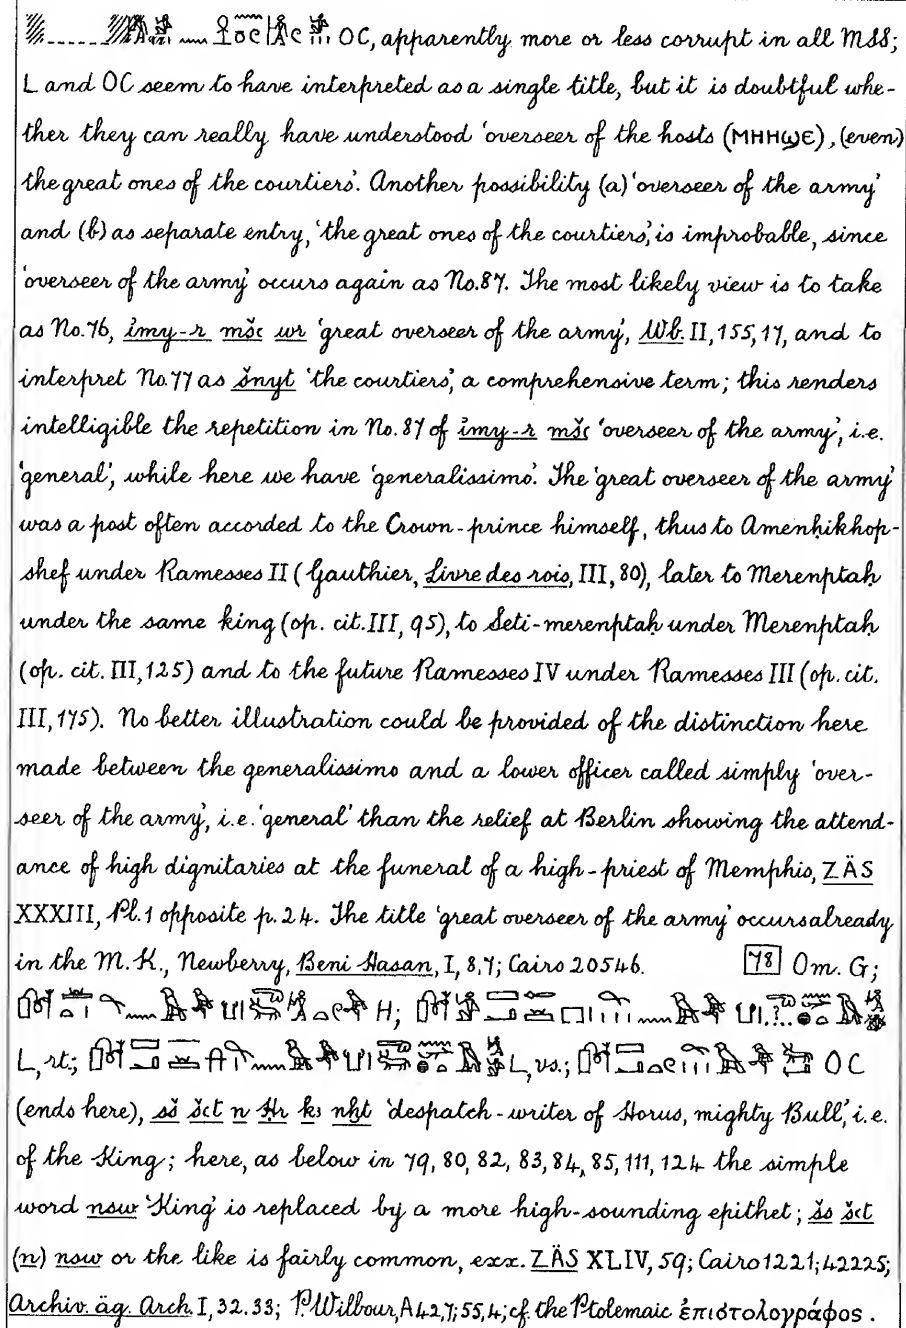 OC, apparently more or less corrupt in all MSS;
L and OC seem to have interpreted as a single title, but it is doubtful whe-
ther they can really have understood 'overseer of the hosts (ⲙⲏⲏϣⲉ), (even)
the great ones of the courtiers'. Another possibility (a) 'overseer of the army'
and (b) as separate entry, 'the great ones of the courtiers', is improbable, since
'overseer of the army' occurs again as No. 87. The most likely view is to take
as No. 76, ỉmy-r mšꜥ wr 'great overseer of the army', Wb. II, 155, 17, and to
interpret No. 77 as šnyt 'the courtiers', a comprehensive term; this renders
intelligible the repetition in No. 87 of ỉmy-r mšꜥ 'overseer of the army', i.e.
'general', while here we have 'generalissimo'. The 'great overseer of the army'
was a post often accorded to the Crown-prince himself, thus to Amenḥikhop-
shef under Ramesses II (Gauthier, Livre des rois, III, 80), later to Merenptaḥ
under the same king (op. cit. III, 95), to Seti-merenptaḥ under Merenptaḥ
(op. cit. III, 125) and to the future Ramesses IV under Ramesses III (op. cit.
III, 175). No better illustration could be provided of the distinction here
made between the generalissimo and a lower officer called simply 'over-
seer of the army', i.e. 'general' than the relief at Berlin showing the attend-
ance of high dignitaries at the funeral of a high-priest of Memphis, ZÄS
XXXIII, Pl. 1 opposite p. 24. The title 'great overseer of the army' occurs already
in the M.K., Newberry, Beni Hasan, I, 8, 7; Cairo 20546. 78 Om. G;
H;
L, rt.; L, vs.; OC
(ends here), sš šꜥt n Ḥr kꜣ nḫt 'despatch-writer of Horus, mighty Bull', i.e.
of the King; here, as below in 79, 80, 82, 83, 84, 85, 111, 124 the simple
word nsw 'King' is replaced by a more high-sounding epithet; šs šꜥt
(n) nsw or the like is fairly common, exx. ZÄS XLIV, 59; Cairo 1221; 42225;
Archiv. äg. Arch. I, 32. 33; P. Wilbour, A 42, 7; 55, 4; cf. the Ptolemaic ἐπιστολογράφος.